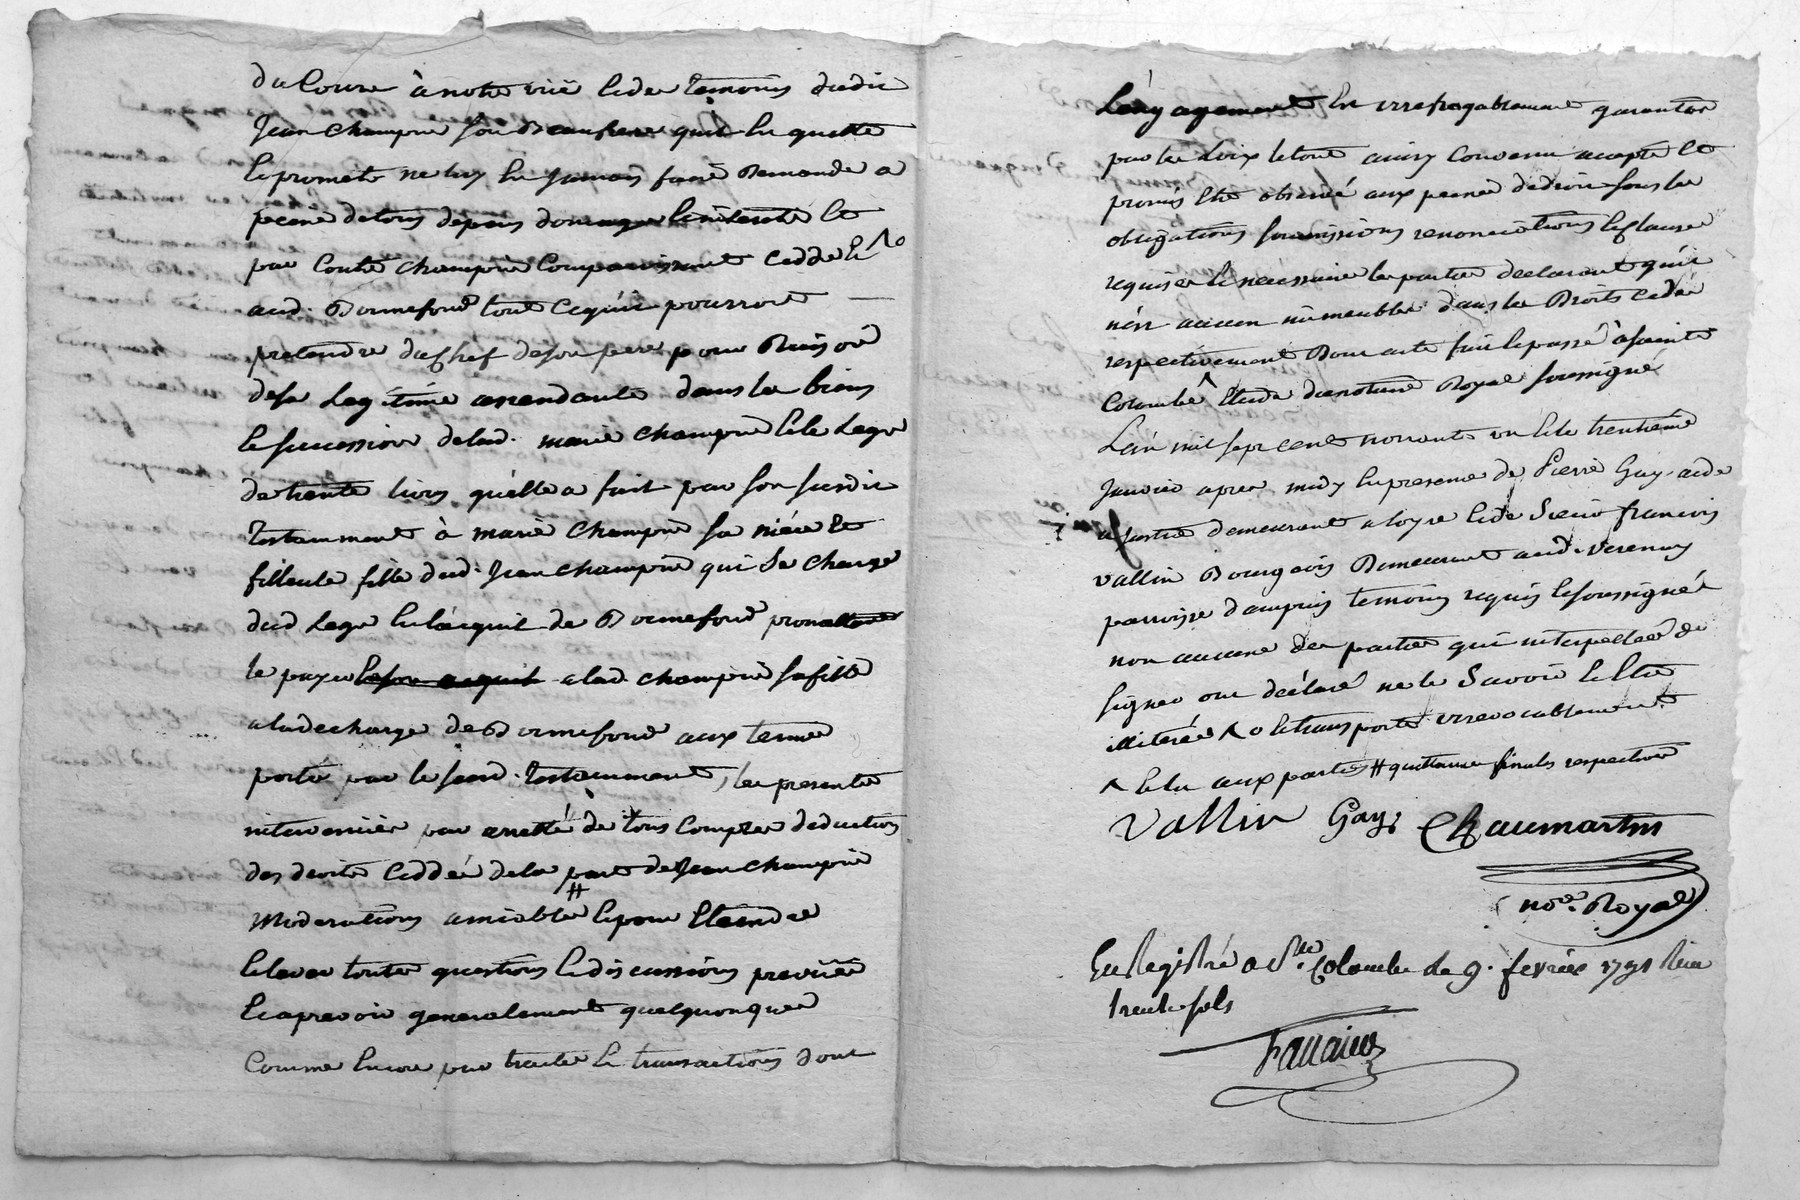 du Couvre à notre vuë et des temoins dudit
Jean Champin son Beaufrere quil en quitte
et promet ne luy en jamais faire Demande a
peine de tous depens domage et interests et
par contre Champin Comparoissant cedde et ^o
aud. Bonnefond tout ce quil pourroit —
pretendre du Chef de son pere pour Raison
de sa Legitime ascendante dans les biens
et succession de lad. marie Champin et le Legs
de trente livres qu'elle a fait par son susdit
testamment à marie Champin sa niéce et
filleule fille dud. Jean Champin qui se charge
dud Legs en l'acquit de Bonnefond
le payer a lad. Champin sa fille
a la decharge de Bonnefond aux termes
portés par le susd. testamment, les presentes
intervenuës par arretté de tous comptes deduction
des droits ceddés de la part de Jean Champin
Moderations amiables # et pour Eteindre
et lever toutes questions et discussions prevuës
et a prevoir generalement quelquonques
Comme encore par traité et transactions dont
L'engagement Est irrefragablement garantie
par les Loix le tout ainsy convenu accepté et
promis Etre observé aux peines de droit sous les
obligations soumissions renonciations et Clauses
requises et necessaires les parties declarant qu'il
n'est aucun immeuble dans les Droits cedés
respectivement Dont acte fait et passé à sainte
Colombe ^ Etude du notaire Royal soussigné
L'an mil sept cent nonante un et le trentieme
Janvier apres midy en presence de Pierre Gay aide
a justice demeurant a Loyre et de Sieur francois
Vallin Bourgeois Demeurant aud. Verenay
parroisse d'ampuis temoins requis et soussignés
non aucune des parties qui interpellées de
signer ont déclaré ne le Savoir et Etre
illiterées ^o et transporte irrevocablement
^ et lu aux parties # quittances finales respectives
Vallin Gay Chaumartin
nore. Royal
En Registré a Ste. Colombe le 9. fevrier 1791 Reçu
trente sols